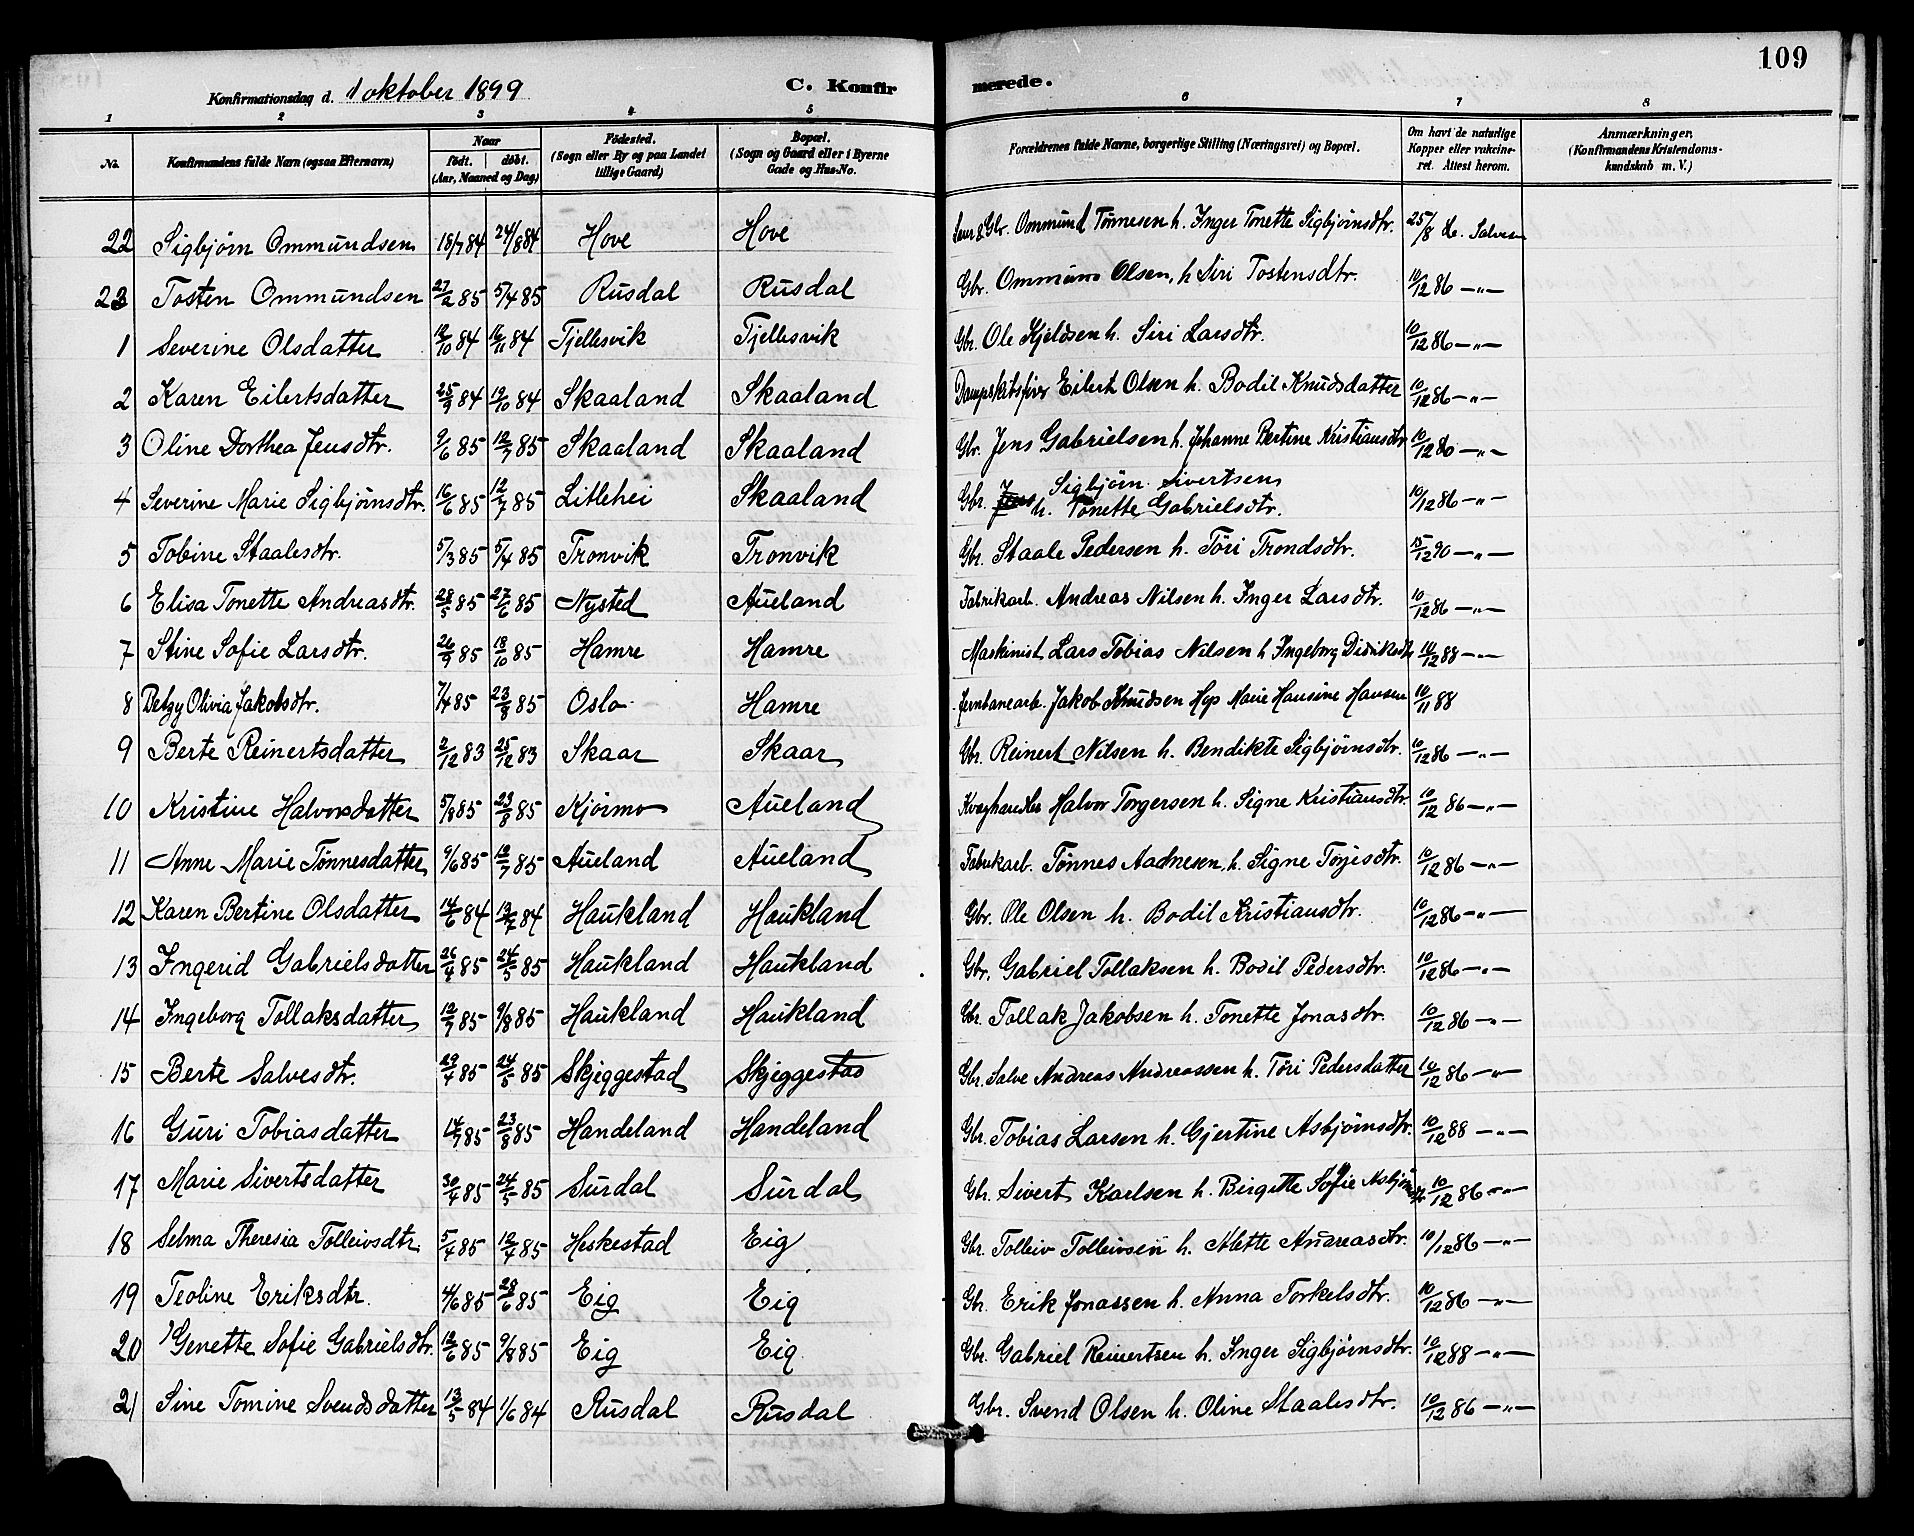 109
Konfirmationsdag d. 1 oktober 1899 C. Konfir merede.
1 2 3 4 5 6 7 8
No. Konfirmandens fulde Navn (ogsaa Efternavn) Naar født. døbt. (Aar, Maaned og Dag) Fødested. (Sogn eller By og paa Landet tillige Gaard) Bopæl. (Sogn og Gaard eller i Byerne Gade og Hus-No. Forældrenes fulde Navne, borgerlige Stilling (Næringsvei) og Bopæl. Om havt de naturlige Kopper eller vakcineret. Attest herom. Anmærkninger. (Konfirmandens Kristendomskundskab m. V.)
22 Sigbjørn Ommundsen 18/7 84 24/8 84 Hove Hove Gbr. Ommund Tønnesen h. Inger Tonette Sigbjørnsdtr. 25/8 Salvesen
23 Tosten Ommundsen 27/2 85 5/4 85 Rusdal Rusdal Gbr. Ommund Olsen, h Siri Tostensdtr. 10/12 86 -"-
1 Severine Olsdatter 12/10 84 16/11 84 Tjellesvik Tjellesvik Gbr. Ole Kjeldsen h. Siri Larsdtr. 10/12 86 -"-
2 Karen Eilertsdatter 25/9 84 19/10 84 Skaaland Skaaland Eilert Olsen h. Bodil Knudsdatter 10/12 86 -"-
3 Oline Dorthea Jensdtr. 9/6 85 12/7 85 Skaaland Skaaland Gbr. Jens Gabrielsen h. Johanne Bertine Kristiansdtr 10/12 86 -"-
4 Severine Marie Sigbjørnsdtr. 16/6 85 12/7 85 Litlehei Skaaland Gbr. Sigbjørn Sivertsen h. Tonette Gabrielsdtr. 10/12 86 -"-
5 Tobine Staalesdtr. 5/3 85 5/4 85 Tronvik Tronvik Gbr. Staale Pedersen h. Tøri Trondsdtr. 15/12 90 -"-
6 Elisa Tonette Andreasdtr. 28/5 85 27/6 85 Nysted Aueland Fabrikarb. Andreas Nilsen h. Inger Larsdtr. 10/12 86 -"-
7 Stine Sofie Larsdtr. 26/9 85 18/10 85 Hamre Hamre Maskinist Lars Tobias Nilsen h Ingeborg Didriksdtr 10/12 88 -"-
8 Betzy Olivia Jakobsdtr. 7/4 85 23/8 85 Oslo Hamre Jernbanearb. Jakob Knudsen Hop Marie Hansine Hansen 10/11 88
9 Berte Reinertsdatter 2/12 83 25/12 83 Skaar Skaar Gbr. Reinert Nilsen h. Bendikte Sigbjørnsdtr. 10/12 86 -"-
10 Kristine Halvorsdatter 5/8 85 23/8 85 Kjørmo Aueland Kvæghandler Halvor Torgersen h. Signe Kristiansdtr. 10/12 86 -"-
11 Anne Marie Tønnesdatter 9/6 85 12/7 85 Aueland Aueland Fabrikarb. Tønnes Aadnesen, h. Signe Torjesdtr. 10/12 86 -"-
12 Karen Bertine Olsdatter 14/6 84 13/7 84 Haukland Haukland Gbr. Ole Olsen h. Bodil Kristiansdtr. 10/12 86 -"-
13 Ingerid Gabrielsdatter 26/4 85 24/5 85 Haukland Haukland Gbr. Gabriel Tollaksen h. Bodil Pedersdtr. 10/12 86 -"-
14 Ingeborg Tollaksdatter 12/7 85 9/8 85 Haukland Haukland Gbr. Tollak Jakobsen h. Tonette Jonasdtr. 10/12 86 -"-
15 Berte Salvesdtr. 29/4 85 24/5 85 Skjeggestad Skjeggestad Gbr. Salve Andreas Andreassen h. Tøri Pedersdatter 10/12 86 -"-
16 Guri Tobiasdatter 14/7 85 23/8 85 Handeland Handeland Gbr. Tobias Larsen h. Gjertine Asbjørnsdtr. 10/12 88 -"-
17 Marie Sivertsdatter 30/4 85 24/5 85 Surdal Surdal Gbr. Sivert Karlsen h. Birgitte Sofie Asbjørnsdtr 10/12 86 -"-
18 Selma Theresia Tolleivsdtr. 5/4 85 12/4 85 Heskestad Eig Gbr. Tolleiv Tolleivsen h. Alette Andreasdtr. 10/12 86 -"-
19 Teoline Eriksdtr. 4/6 85 28/6 85 Eig Eig Gbr. Erik Jonassen h. Anna Torkelsdtr. 10/12 86 -"-
20 Genette Sofie Gabrielsdtr. 12/6 85 9/8 85 Eig Eig Gbr. Gabriel Reinertsen h. Inger Sigbjørnsdtr. 10/12 88 -"-
21 Sine Tomine Svendsdatter 13/5 84 1/6 84 Rusdal Rusdal Gbr. Svend Olsen h. Oline Staalesdtr. 10/12 86 -"-